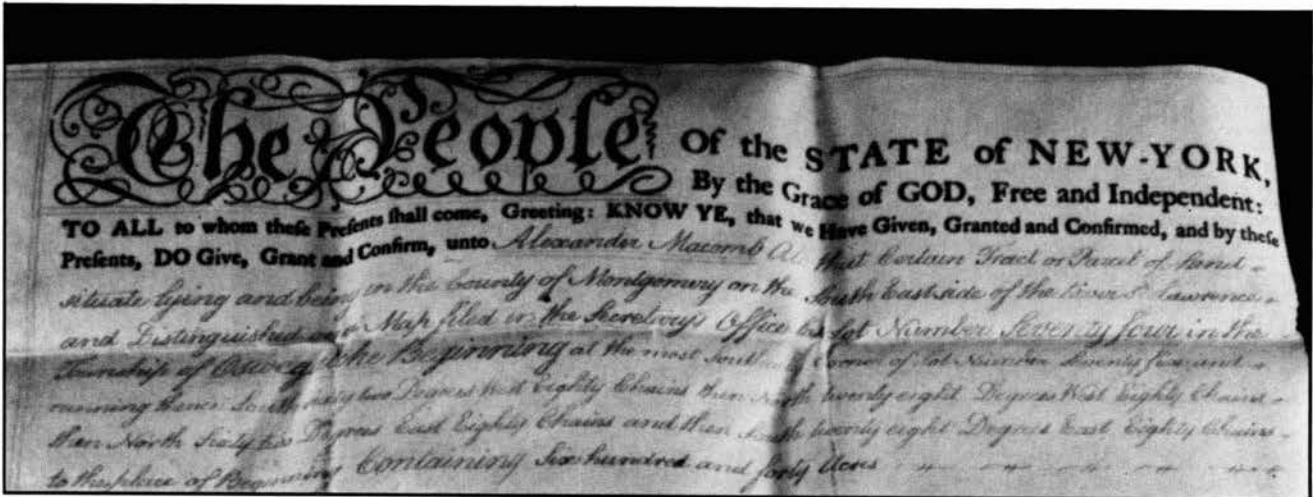 The People Of the STATE of NEW-YORK,
By the Grace of GOD, Free and Independent:
TO ALL to whom theſe Preſents ſhall come, Greeting: KNOW YE, that we Have Given, Granted and Confirmed, and by theſe
Preſents, DO Give, Grant and Confirm, unto Alexander Macomb All that Certain Tract or Parcel of Land
situate lying and being in the County of Montgomery on the South East side of the River St Lawrence
and Distinguished on a Map filed in the Secretary's Office as Lot Number Seventy four in the
Township of Beginning at the most of Lot Number Seventy and
running thence South two Degrees West Eighty Chains then North twenty eight Degrees West Eighty Chains
then North Sixty two Degrees East Eighty Chains and then South twenty eight Degrees East Eighty Chains
to the place of Beginning Containing Six hundred and forty Acres